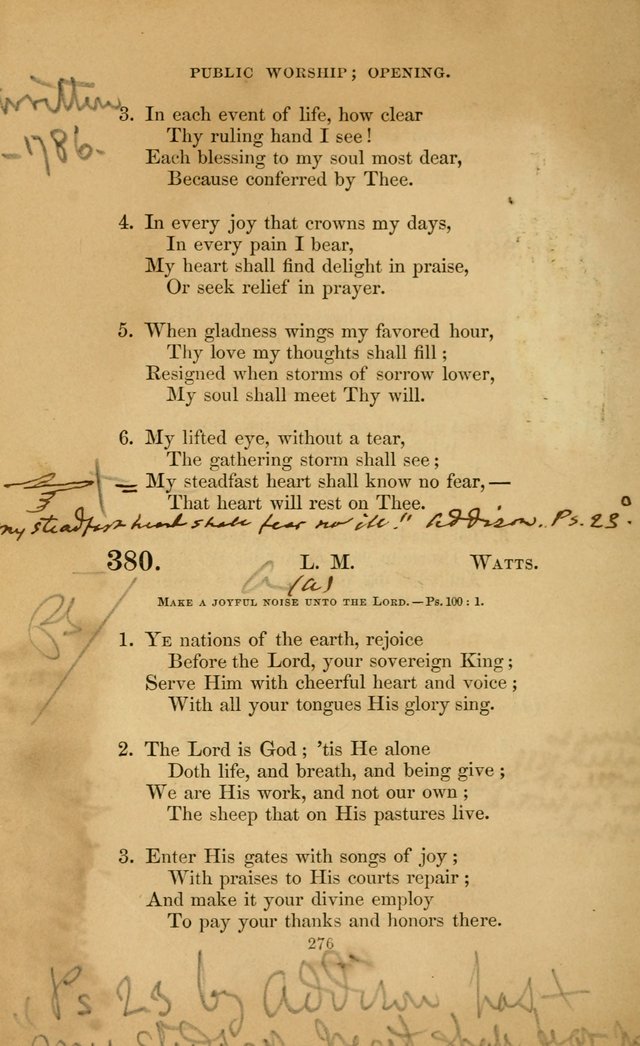 PUBLIC WORSHIP; OPENING.
written
-1786-
3. In each event of life, how clear
Thy ruling hand I see!
Each blessing to my soul most dear,
Because conferred by Thee.
4. In every joy that crowns my days,
In every pain I bear,
My heart shall find delight in praise,
Or seek relief in prayer.
5. When gladness wings my favored hour,
Thy love my thoughts shall fill;
Resigned when storms of sorrow lower,
My soul shall meet Thy will.
6. My lifted eye, without a tear,
The gathering storm shall see;
My steadfast heart shall know no fear,—
That heart will rest on Thee.
my steadfast heart shall fear no ill." Addison. Ps. 23
380. L. M. WATTS.
(a)
MAKE A JOYFUL NOISE UNTO THE LORD.—Ps. 100: 1.
1. YE nations of the earth, rejoice
Before the Lord, your sovereign King;
Serve Him with cheerful heart and voice;
With all your tongues His glory sing.
2. The Lord is God; 'tis He alone
Doth life, and breath, and being give;
We are His work, and not our own;
The sheep that on His pastures live.
3. Enter His gates with songs of joy;
With praises to His courts repair;
And make it your divine employ
To pay your thanks and honors there.
276
"Ps 23 by Addison
heart shall fear